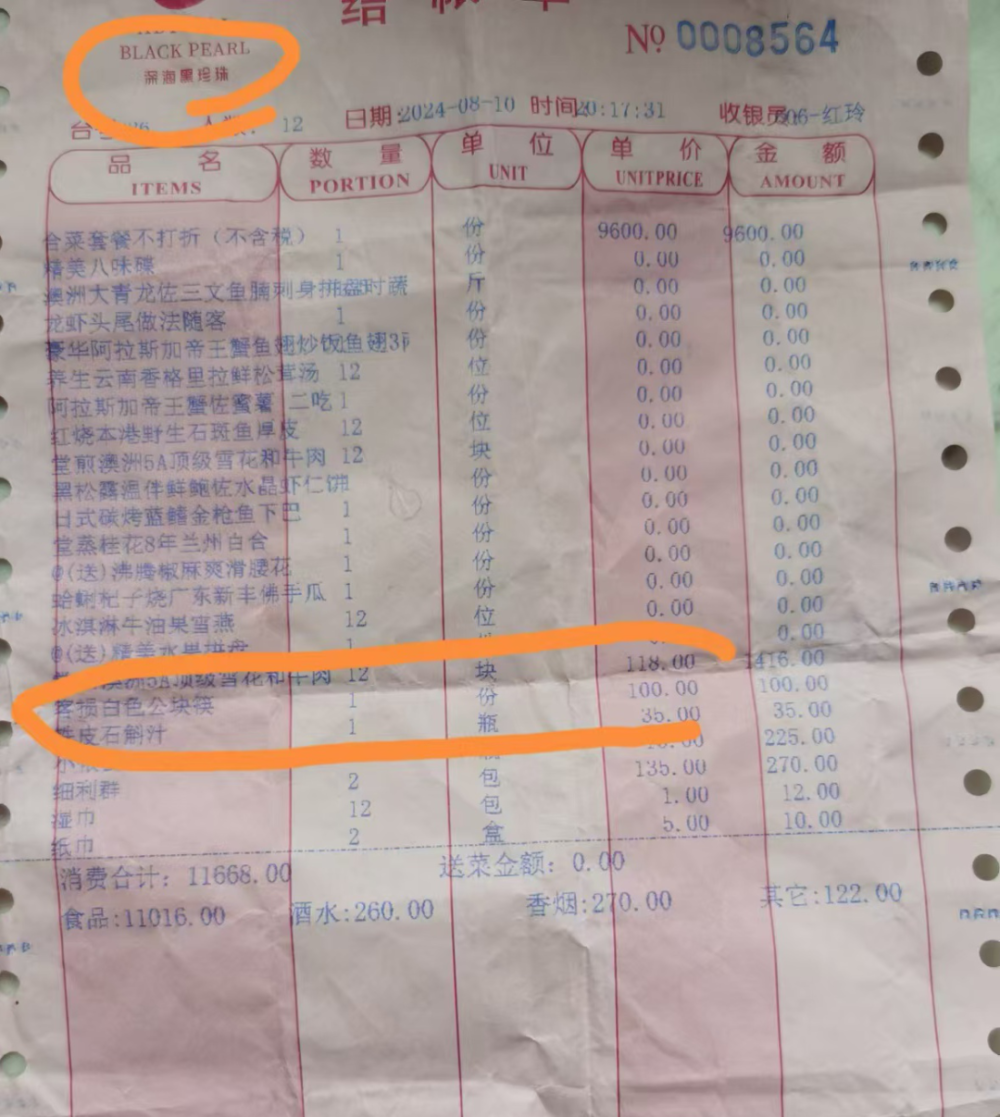 BLACK PEARL
深海黑珍珠
№ 0008564
12 日期:2024-08-10 时间20:17:31 收银员 06-红玲
品名 数量 单位 单价 金额
ITEMS PORTION UNIT UNITPRICE AMOUNT
合菜套餐不打折（不含税） 1 份 9600.00 9600.00
精美八味碟 1 份 0.00 0.00
澳洲大青龙佐三文鱼腩刺身拼盘 时蔬 斤 0.00 0.00
龙虾头尾做法随客 1 份 0.00 0.00
豪华阿拉斯加帝王蟹鱼翅炒饭鱼翅3 份 0.00 0.00
养生云南香格里拉鲜松茸汤 12 位 0.00 0.00
阿拉斯加帝王蟹佐蜜薯 二吃 1 份 0.00 0.00
红烧本港野生石斑鱼厚皮 12 位 0.00 0.00
堂煎澳洲5A顶级雪花和牛肉 12 块 0.00 0.00
黑松露温伴鲜鲍佐水晶虾仁饼 份 0.00 0.00
日式碳烤蓝鳍金枪鱼下巴 1 份 0.00 0.00
堂蒸桂花8年兰州百合 1 份 0.00 0.00
@(送)沸腾椒麻爽滑腰花 1 份 0.00 0.00
蛤蜊杞子烧广东新丰佛手瓜 1 份 0.00 0.00
冰淇淋牛油果雪燕 12 位 0.00 0.00
@(送)精美水果拼盘 1 0.00
澳洲5A顶级雪花和牛肉 12 块 118.00 1416.00
客损白色公块筷 1 份 100.00 100.00
铁皮石斛汁 1 瓶 35.00 35.00
225.00
细利群 2 包 135.00 270.00
湿巾 12 包 1.00 12.00
纸巾 2 盒 5.00 10.00
消费合计: 11668.00 送菜金额: 0.00
食品:11016.00 酒水:260.00 香烟:270.00 其它:122.00